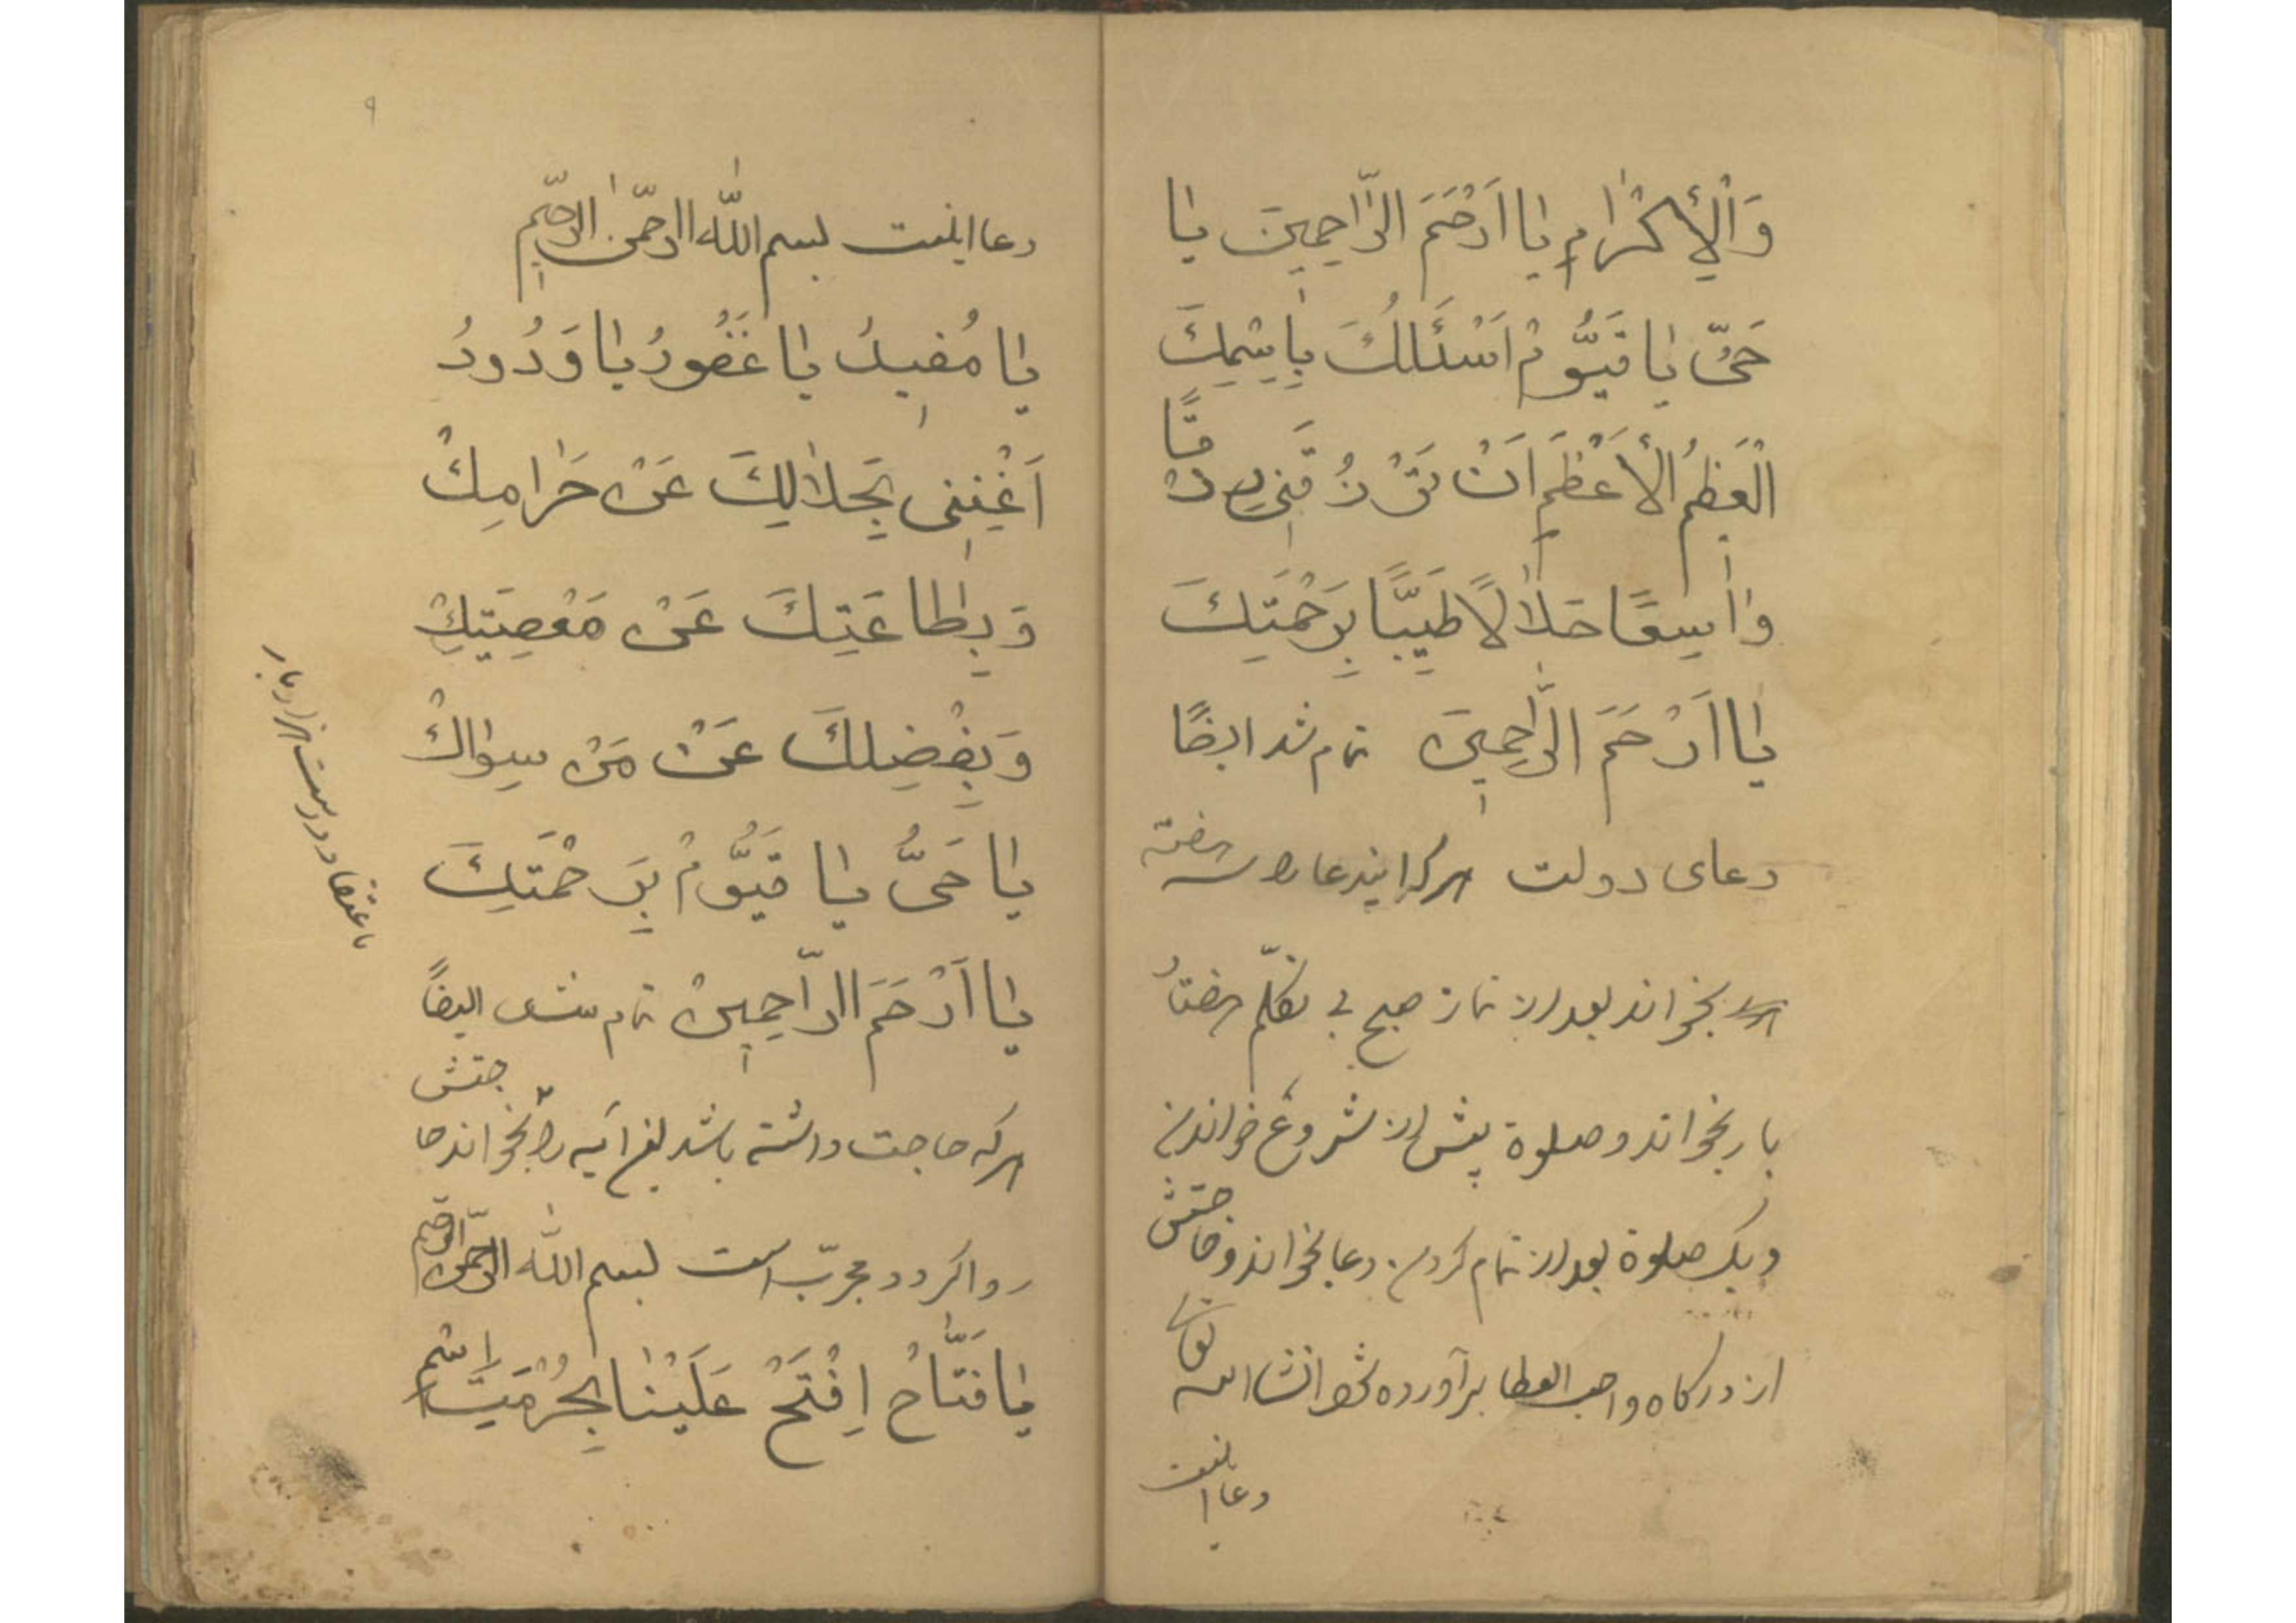 وَالْاِكْرٰامِ يٰا اَرْحَمَ الرّٰاحِمِينَ يٰا
حَىُّ يٰا قَيُّومْ اَسْئَلُكَ بِاِسْمِكَ
الْعَظِيمُ الْاَعْظَمِ اَنْ تَرْزُقَنِى رِزْقًا
وٰاسِعًا حَلٰالًا طَيِّبًا بِرَحْمَتِكَ
يٰا اَرْحَمَ الرّٰاحِمِينَ تمام شد ايضًا
دعاى دولت هركه ايندعا را سه هفته
بخواند بعد از نماز صبح بى تكلّم هفتاد
بار بخواند و صلوة پيش از شروع خواندن
و يك صلوة بعد از تمام كردن دعا بخواند و حاجتش
از درگاه واهب العطا برآورده شود انشاالله تعالى
دعا اينست
۹
دعا اينست بسم اللّٰه الرّحمٰن الرّحيم
يٰا مُفِيدُ يٰا غَفُورُ يٰا وَدُودُ
اَغْنِنِى بِحَلٰالِكَ عَنْ حَرٰامِكْ
وَ بِطٰاعَتِكَ عَنْ مَعْصِيَتِكْ
وَ بِفْضِلِكَ عَنْ مَنْ سِوٰاكْ
يٰا حَىُّ يٰا قَيُّومْ بِرَحْمَتِكَ
يٰا اَرْحَمَ الرّٰاحِمِينْ تمام شد ايضًا
هركه حاجت داشته باشد اين آيه را بخواند حاجتش
روا كردد مجرّب است بسم اللّٰه الرّحمن الرّحيم
يٰا فَتّٰاحْ اِفْتَحْ عَلَيْنٰا بِحُرْمَتِ اسْمِ